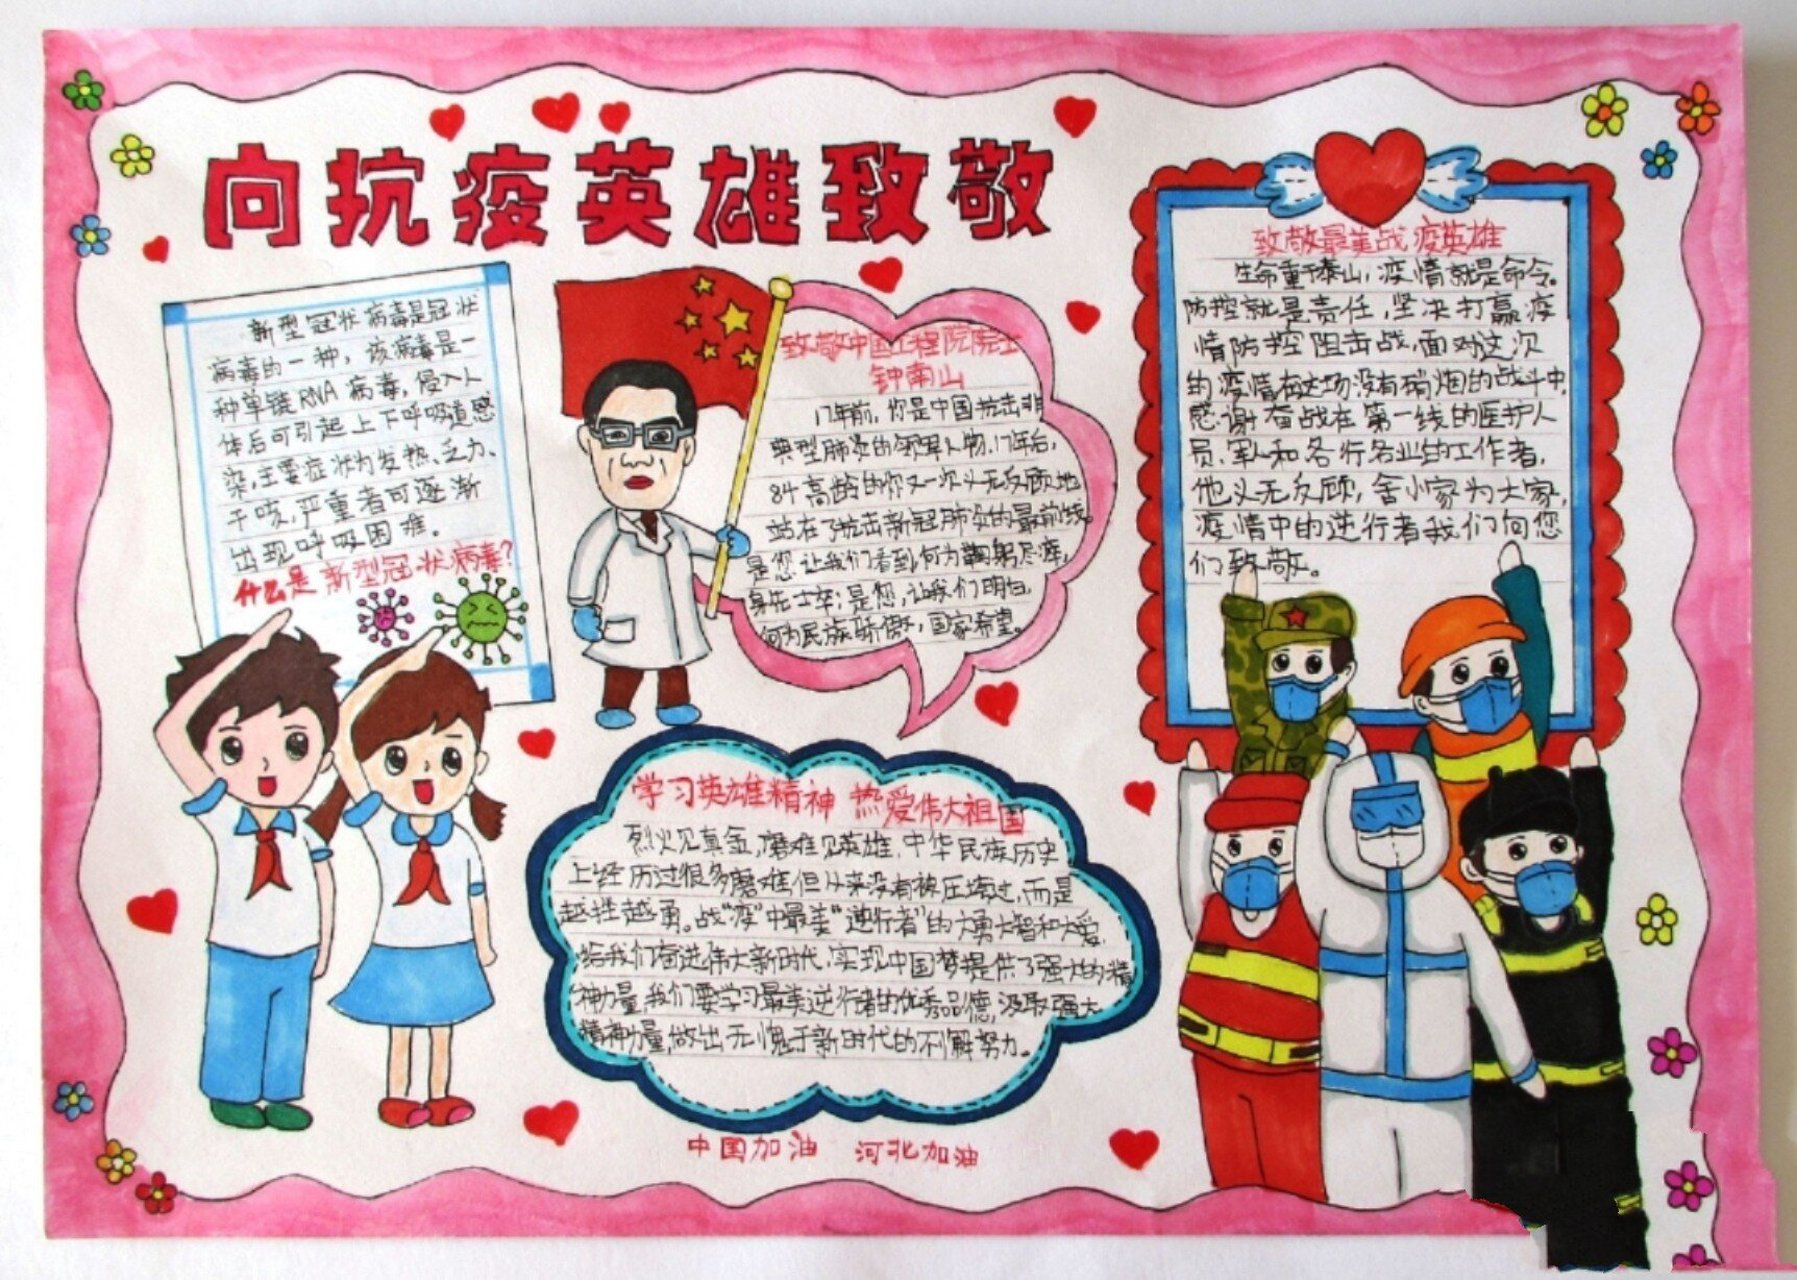 向抗疫英雄致敬
新型冠状病毒是冠状
病毒的一种，该病毒是一
种单链RNA病毒，侵入人
体后可引起上下呼吸道感
染，主要症状为发热、乏力、
干咳，严重者可逐渐
出现呼吸困难。
什么是新型冠状病毒？
致敬中国工程院院士
钟南山
17年前，你是中国抗击非
典型肺炎的领军人物，17年后，
84高龄的你又一次义无反顾地
站在了抗击新冠肺炎的最前线。
是您让我们看到何为鞠躬尽瘁，
身先士卒；是您，让我们明白，
何为民族骄傲，国家希望。
致敬最美战疫英雄
生命重于泰山，疫情就是命令。
防控就是责任，坚决打赢疫
情防控阻击战，面对这次
的疫情在这场没有硝烟的战斗中，
感谢奋战在第一线的医护人
员、军人和各行各业的工作者，
他义无反顾，舍小家为大家，
疫情中的逆行者我们向您
们致敬。
学习英雄精神 热爱伟大祖国
烈火见真金，磨难见英雄，中华民族历史
上经历过很多磨难但从来没有被压垮过，而是
越挫越勇。战“疫”中最美“逆行者”的大勇大智和大爱，
给我们奋进伟大新时代，实现中国梦提供了强大的精
神力量，我们要学习最美逆行者的优秀品德，汲取强大
精神力量，做出无愧于新时代的不懈努力。
中国加油 河北加油